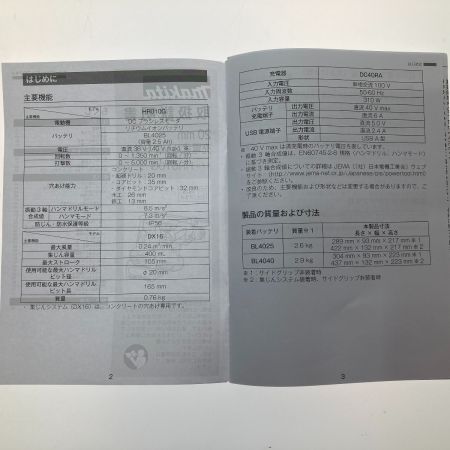 はじめに
主要機能
モデル
主要機能
HR010G
電動機
DCブラシレスモータ
バッテリ
リチウムイオンバッテリ
BL4025
(容量 2.5 Ah)
電圧
直流 36 V (40 V max) ※
回転数
0 - 1,350 min⁻¹ (回転／分)
打撃数
0 - 5,000 min⁻¹ (回／分)
穴あけ能力
コンクリート
・超硬ドリル：20 mm
・コアビット：35 mm
・ダイヤモンドコアビット：32 mm
木工：26 mm
鉄工：13 mm
振動 3 軸合成値
ハンマドリルモード
8.5 m/s²
ハンマモード
7.3 m/s²
防じん・防水保護等級
IP56
モデル
主要機能
DX16
最大風量
0.24 m³/min
集じん容量
400 mL
最大ストローク
105 mm
使用可能な最大ハンマドリルビット径
φ 20 mm
使用可能な最大ハンマドリルビット長
165 mm
質量
0.76 kg
・集じんシステム (DX16) は、コンクリートの穴あけ専用です。
2
はじめに
充電器
DC40RA
入力電圧
単相交流 100 V
入力周波数
50-60 Hz
入力容量
310 W
バッテリ充電端子
出力電圧
直流 40 V max
出力電流
直流 6 A
USB 電源端子
出力電圧
直流 5.0 V
出力電流
直流 2.4 A
形状
USB A 型
※ 40 V max は満充電時のバッテリ電圧を表しています。
・振動 3 軸合成値は、EN60745-2-6 規格 (ハンマドリル、ハンマモード) に基づき測定。
・振動 3 軸合成値についての詳細は JEMA ((社) 日本電機工業会) ウェブサイト (http://www.jema-net.or.jp/Japanese/pis/powertool.htm) をご参照ください。
・改良のため、主要機能および形状などは変更する場合がありますので、ご了承ください。
製品の質量および寸法
装着バッテリ
質量※1
本製品寸法
長さ × 幅 × 高さ
BL4025
2.6 kg
289 mm × 93 mm × 217 mm ※1
422 mm × 132 mm × 217 mm ※2
BL4040
2.9 kg
304 mm × 93 mm × 223 mm ※1
437 mm × 132 mm × 223 mm ※2
※ 1：サイドグリップ非装着時
※ 2：集じんシステム装着時、サイドグリップ非装着時
3